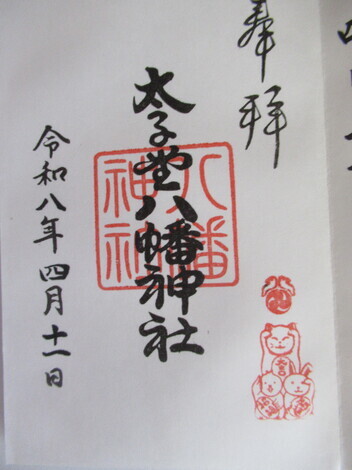 奉拝
太子堂八幡神社
八幡
神社
令和八年四月十一日